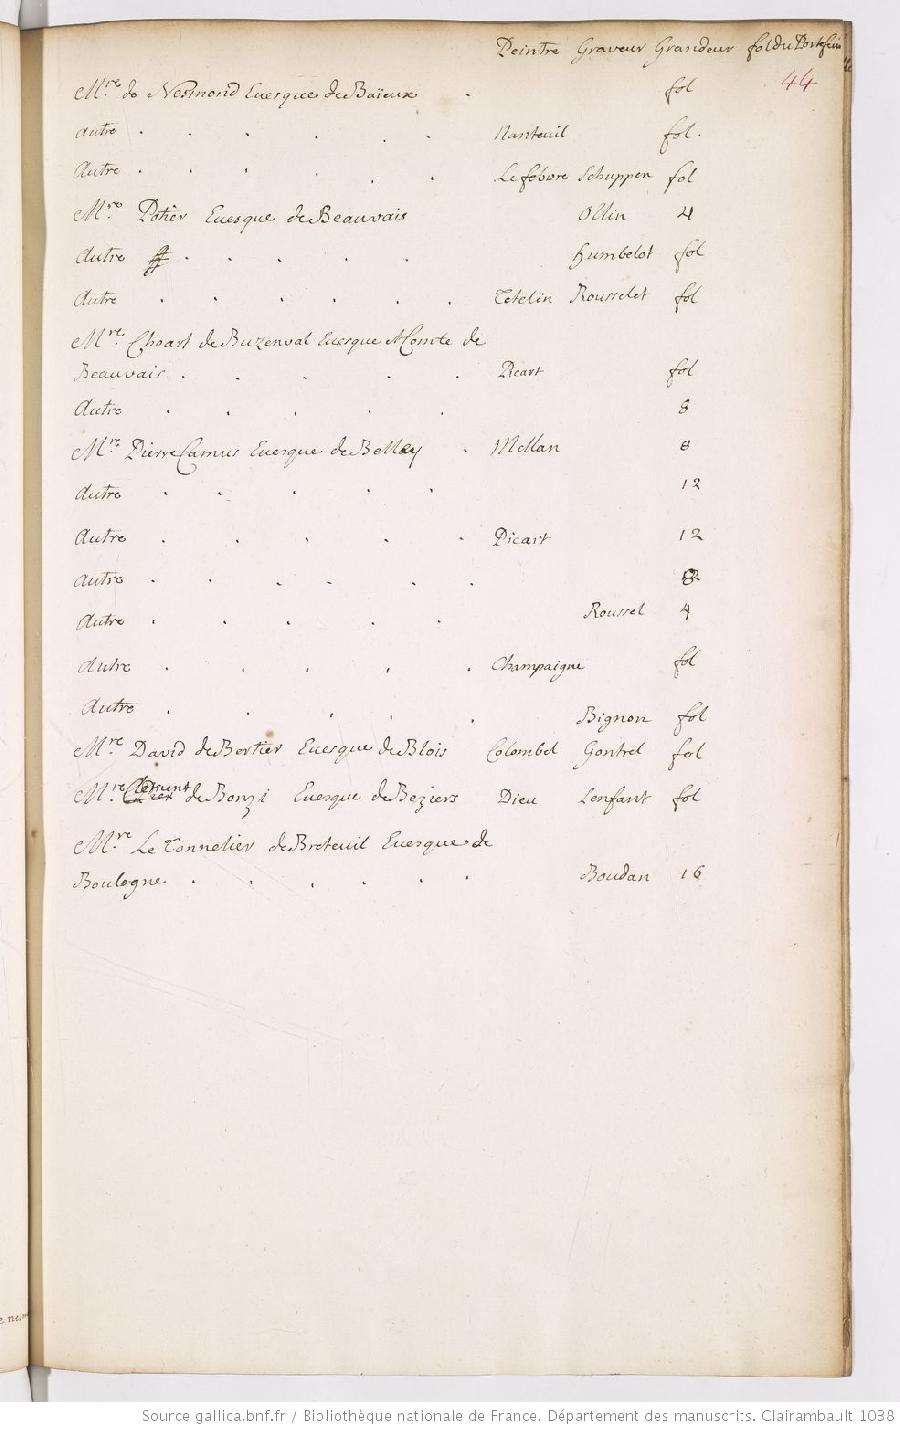 Peintre Graveur Grandeur fol du Portefeuille
44
Mre. de Nesmond Euesque de Baïeux . fol
autre . . . . . . Nanteuil fol.
Autre . . . . . . Lefebure Schuppen fol
Mre. Potier Euesque de Beauvais Ollin 4
Autre . . . . . Humbelot fol
Autre . . . . . . Tetelin Rousselet fol
Mre. Choart de Buzenval Euesque & Comte de
Beauvais . . . . . Picart fol
Autre . . . . . 8
Mre. Pierre Camus Euesque de Belley . Mellan 8
autre . . . . . 12
Autre . . . . . Picart 12
autre . . . . . .
Autre . . . . . Roussel 4
Autre . . . . . Champaigne fol
Autre . . . . . Bignon fol
Mre. David de Bertier Euesque de Blois Colombel Gontrel fol
Mre. Clement de Bonzi Euesque de Beziers Dieu Lenfant fol
Mre. Le Tonnelier de Breteuil Euesque de
Boulogne . . . . . . Boudan 16
Source gallica.bnf.fr / Bibliothèque nationale de France. Département des manuscrits. Clairambault 1038